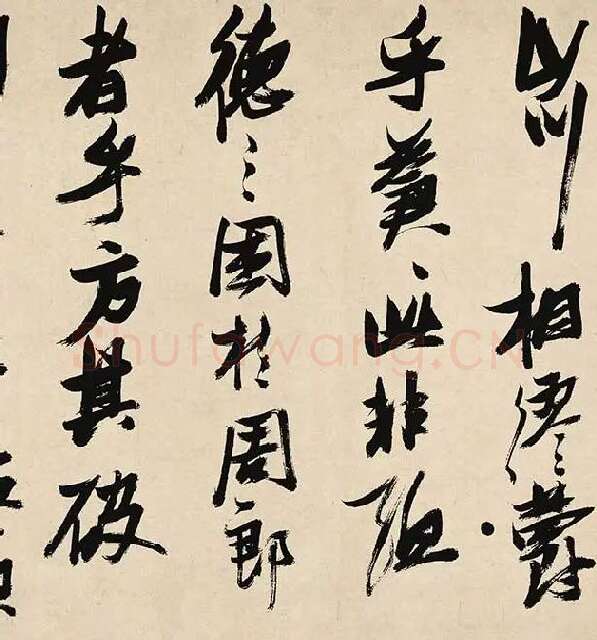 山川相繆鬱
乎蒼〻此非孟
德之困於周郎
者乎方其破
shufawang.CN